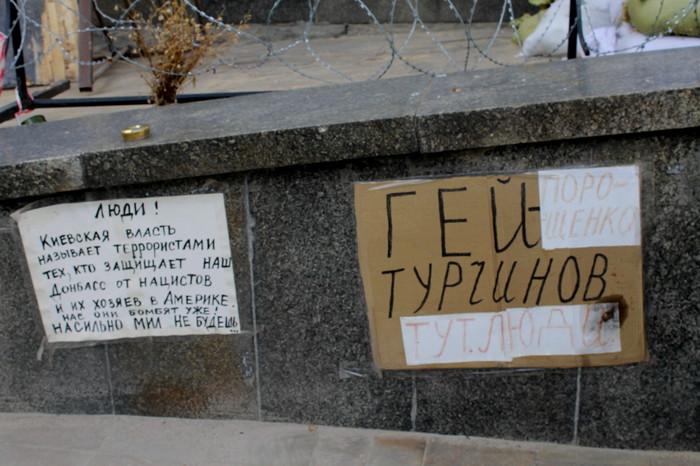 ЛЮДИ!
КИЕВСКАЯ ВЛАСТЬ
НАЗЫВАЕТ ТЕРРОРИСТАМИ
ТЕХ, КТО ЗАЩИЩАЕТ НАШ
ДОНБАСС ОТ НАЦИСТОВ
И ИХ ХОЗЯЕВ В АМЕРИКЕ.
НАС ОНИ БОМБЯТ УЖЕ!
НАСИЛЬНО МИЛ НЕ БУДЕШЬ...
ГЕЙ
ПОРО-
ЩЕНКО
ТУРЧИНОВ
ТУТ ЛЮДИ